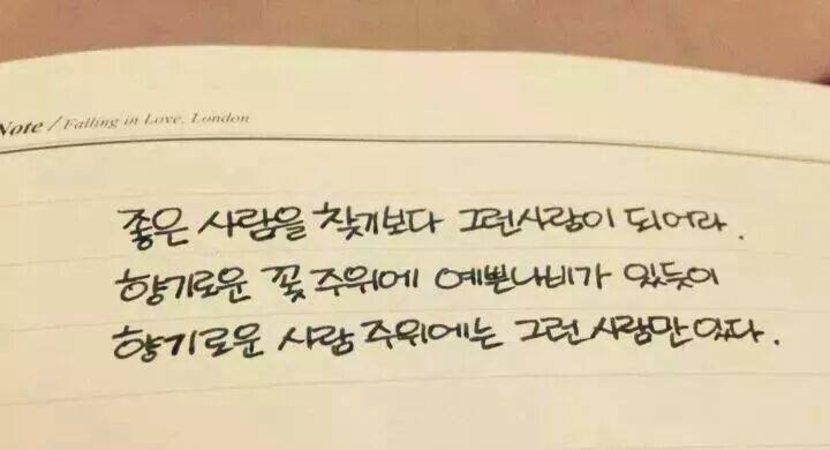 Note / Falling in Love. London
좋은 사람을 찾기보다 그런사람이 되어라.
향기로운 꽃 주위에 예쁜나비가 있듯이
향기로운 사람 주위에는 그런 사람만 있다.